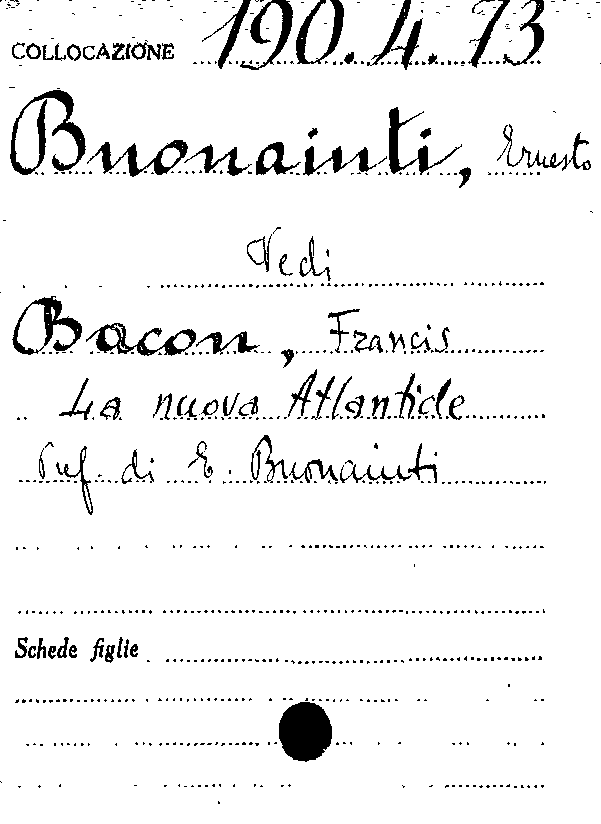 COLLOCAZIONE 190.4.73
Buonainti, Ernesto
Vedi
Bacon, Francis
La nuova Atlantide
Pref. di E. Buonainti
Schede figlie